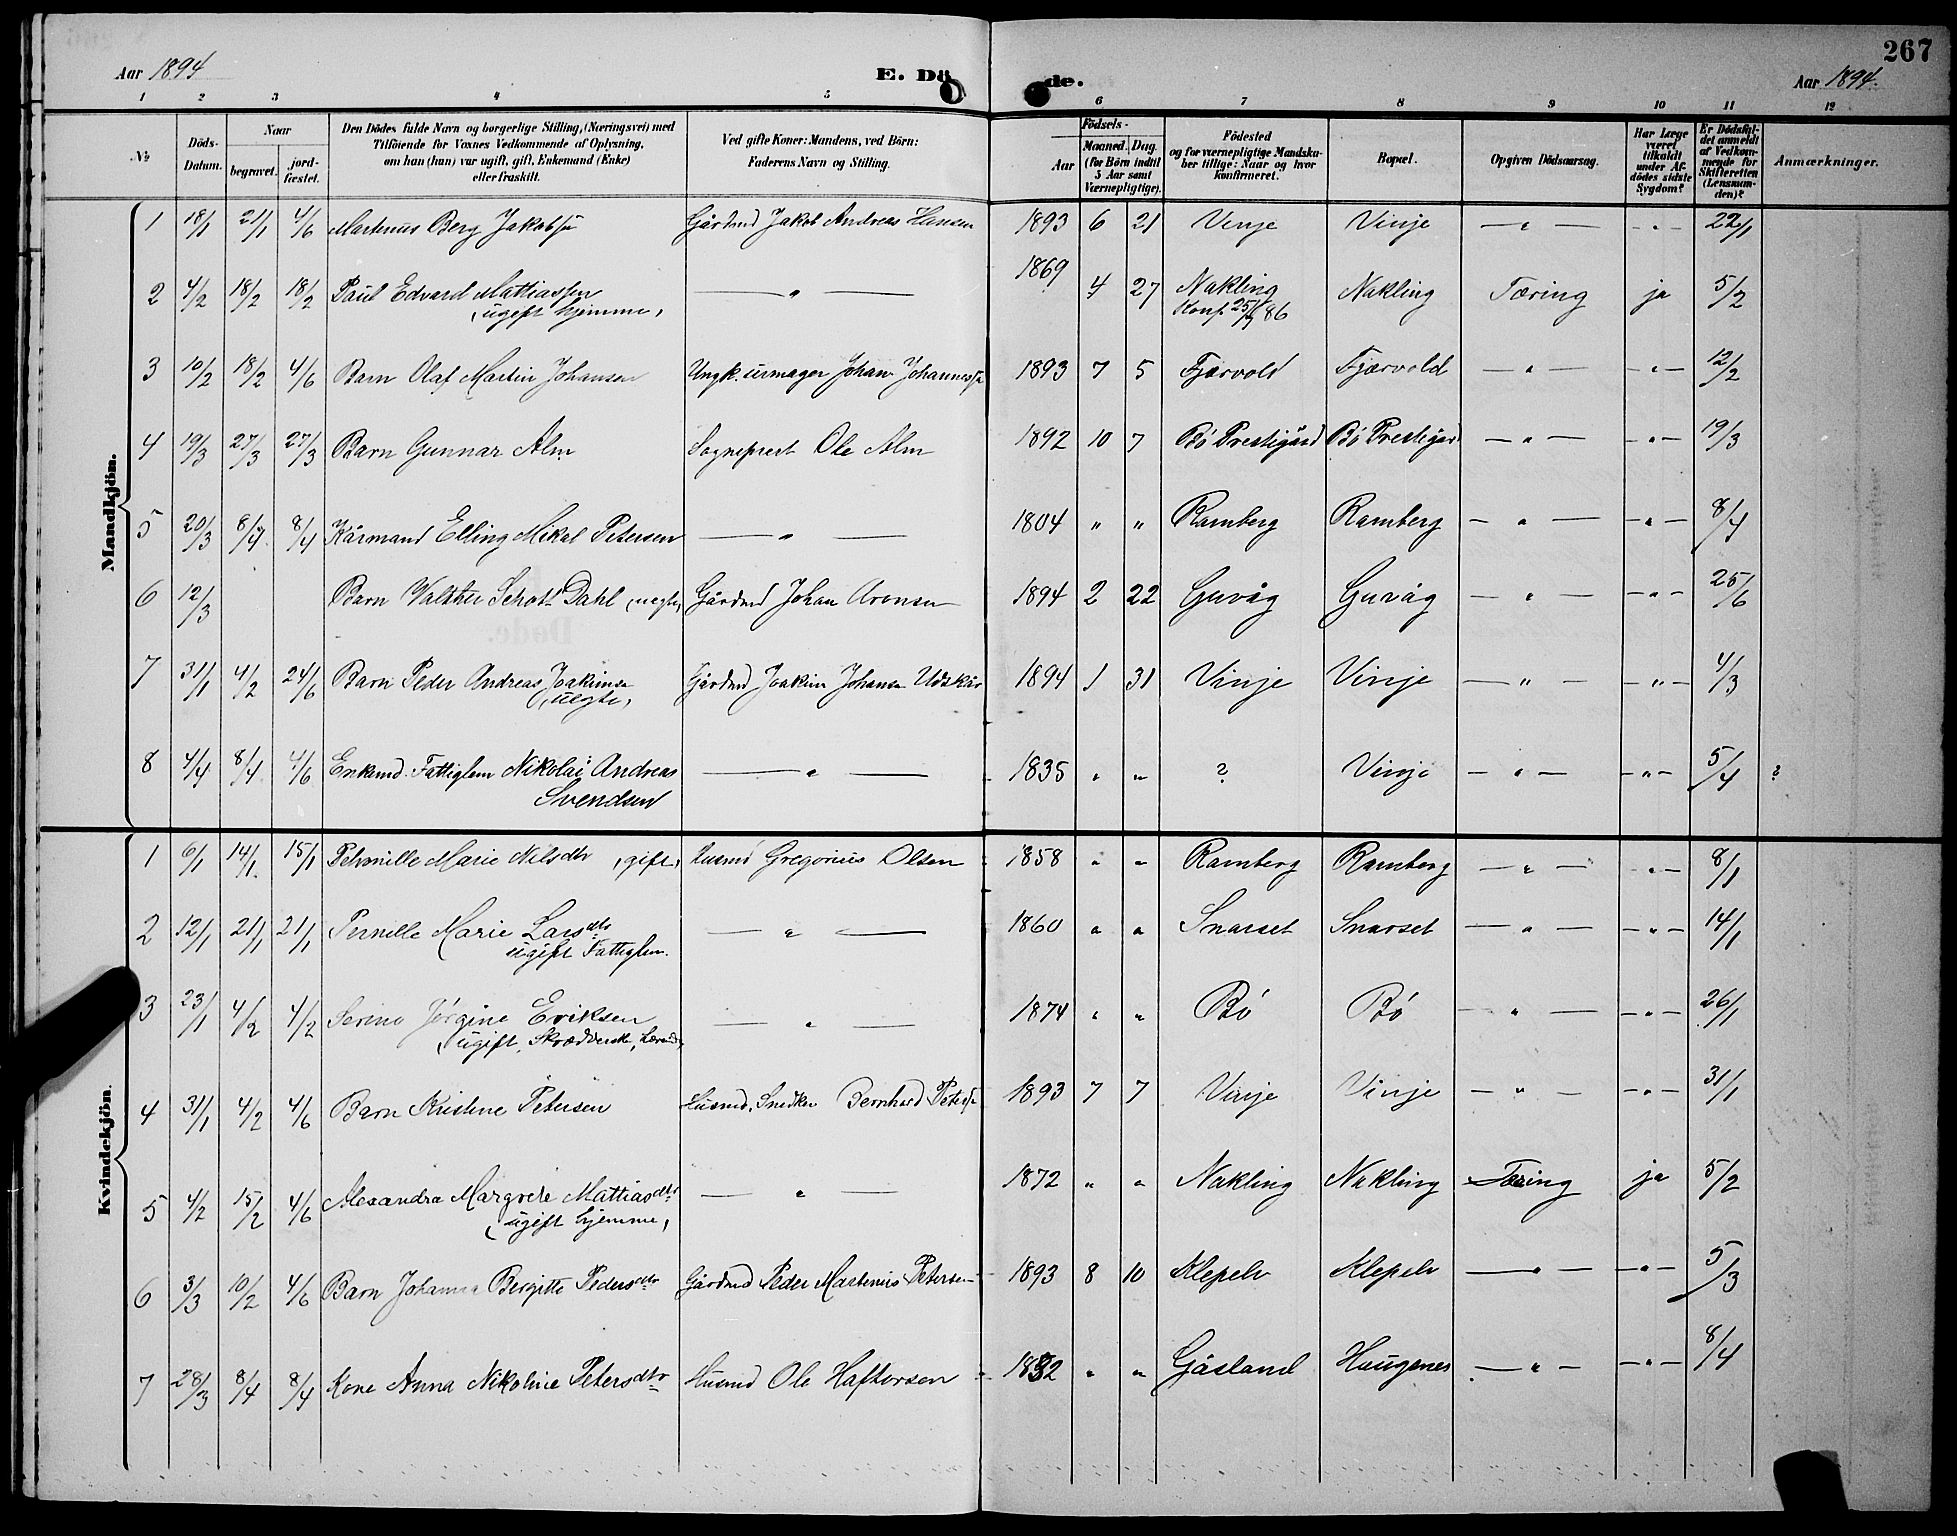 267
Aar 1894
E. Dö de.
Aar 1894.
1 2 3 4 5 6 7 8 9 10 11 12
№
Döds-Datum.
Naar
begravet.
jord-fæstet.
Den Dödes fulde Navn og borgerlige Stilling, (Næringsvei) med
Tilföiende for Voxnes Vedkommende af Oplysning,
om han (hun) var ugift, gift, Enkemand (Enke)
eller fraskilt.
Ved gifte Koner: Mandens, ved Börn:
Faderens Navn og Stilling.
Födsels-
Aar
Maaned. Dag.
(for Börn indtil
5 Aar samt
Værnepligtige).
Födested
og for værnepligtige Mandska-
ber tillige: Naar og hvor
konfirmeret.
Bopæl.
Opgiven Dödsaarsag.
Har Læge
været
tilkaldt
under Af-
dödes sidste
Sygdom?
Er Dödsfal-
det anmeldt
af Vedkom-
mende for
Skifteretten
(Lensman-
den)?
Anmærkninger.
Mandkjön.
1 18/1 21/1 4/6 Martinus Berg Jakobsn Gårdmd Jakob Andreas Hansen 1893 6 21 Vinje Vinje — " — - " - 22/1
2 4/2 18/2 18/2 Paul Edvard Mattiassen — " — 1869 4 27 Nakling Nakling Tæring ja 5/2
(ugift hjemme) Konf 25/7 86
3 10/2 18/2 4/6 Barn Olaf Martin Johansen Ungk. urmager Johan Johannessn 1893 7 5 Fjærvold Fjærvold — " — - " - 12/2
4 19/3 27/3 27/3 Barn Gunnar Alm Sogneprest Ole Alm 1892 10 7 Bö Prestigård Bö Prestigård — " — - " - 19/3
5 20/3 8/4 8/4 Kårmand Elling Mikal Petersen — " — 1804 " " Ramberg Ramberg — " — - " - 8/4
6 12/3 Barn Valther Schött Dahl (uegte) Gårdmd Johan Arensen 1894 2 22 Guvåg Guvåg — " — - " - 25/6
7 31/1 4/2 24/6 Barn Peder Andreas Joakimsn Gårdmd Joakim Johansen Udskår 1894 1 31 Vinje Vinje — " — - " - 4/3
(uegte)
8 4/4 8/4 4/6 Enkemd. Fattiglem Nikolai Andreas — " — 1835 " " ? Vinje — " — - " - 5/4 ?
Svendsen
Kvindekjön.
1 6/1 14/1 15/1 Petronille Marie Nilsdtr (gift) Husmd Gregorius Olsen 1858 " " Ramberg Ramberg — " — - " - 8/1
2 12/1 21/1 21/1 Pernille Marie Larsdtr — " — 1860 " " Snarset Snarset — " — - " - 14/1
ugift Fattiglem.
3 23/1 4/2 4/2 Serine Jörgine Eriksen — " — 1874 " " Bö Bö — " — - " - 26/1
(ugift,
4 31/1 4/2 4/6 Barn Kristine Petersen Husmd. Snedker Bernhard Petersn 1893 7 7 Vinje Vinje — " — - " - 31/1
5 4/2 15/2 4/6 Alexandra Margrete Mattiasdtr — " — 1872 " " Nakling Nakling Tæring ja 5/2
(ugift hjemme)
6 3/3 10/2 4/6 Barn Johanna Bergitte Pedersdtr Gårdmd Peder Martinus Petersen 1893 8 10 Klepelv Klepelv — " — - " - 5/3
7 28/3 8/4 8/4 Kone Anna Nikoline Petersdtr Husmd Ole Haftorsen 1832 " " Gåsland Haugenes — " — - " - 8/4